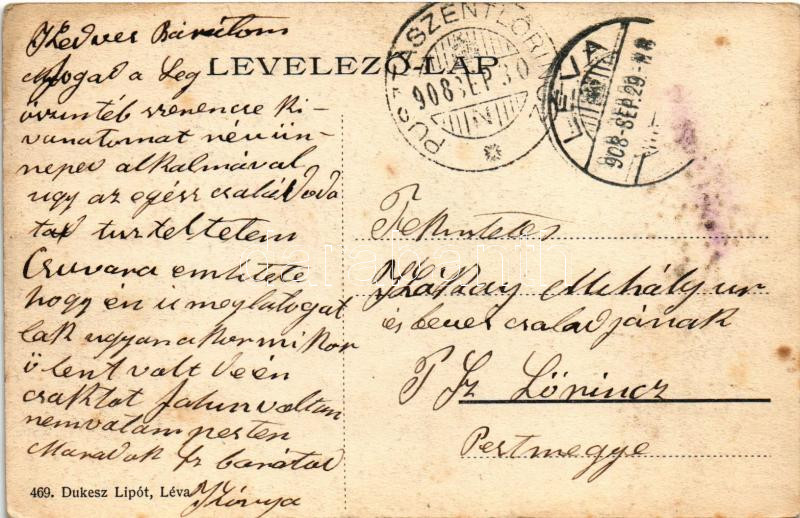 Kedves Barátom
LEVELEZŐ-LAP
fogad a Leg
öszintéb szerencse ki-
vanatomat névün-
neped alkalmával
ugy az egész család oda
tat tisteltetem
Csuvara emlitete
hogy én is meglátogat
lak ugyanakor mikor
ő lent volt de én
csak tot falun voltam
nem voltam pesten
Maradok barátod
Kónya
PUSZTASZENTLŐRINCZ
908 SEP 30
LÉVA
908 SEP. 29.
Tekintetes
Mihály ur
és becses családjának
P Sz Lörincz
Pestmegye
469. Dukesz Lipót, Léva